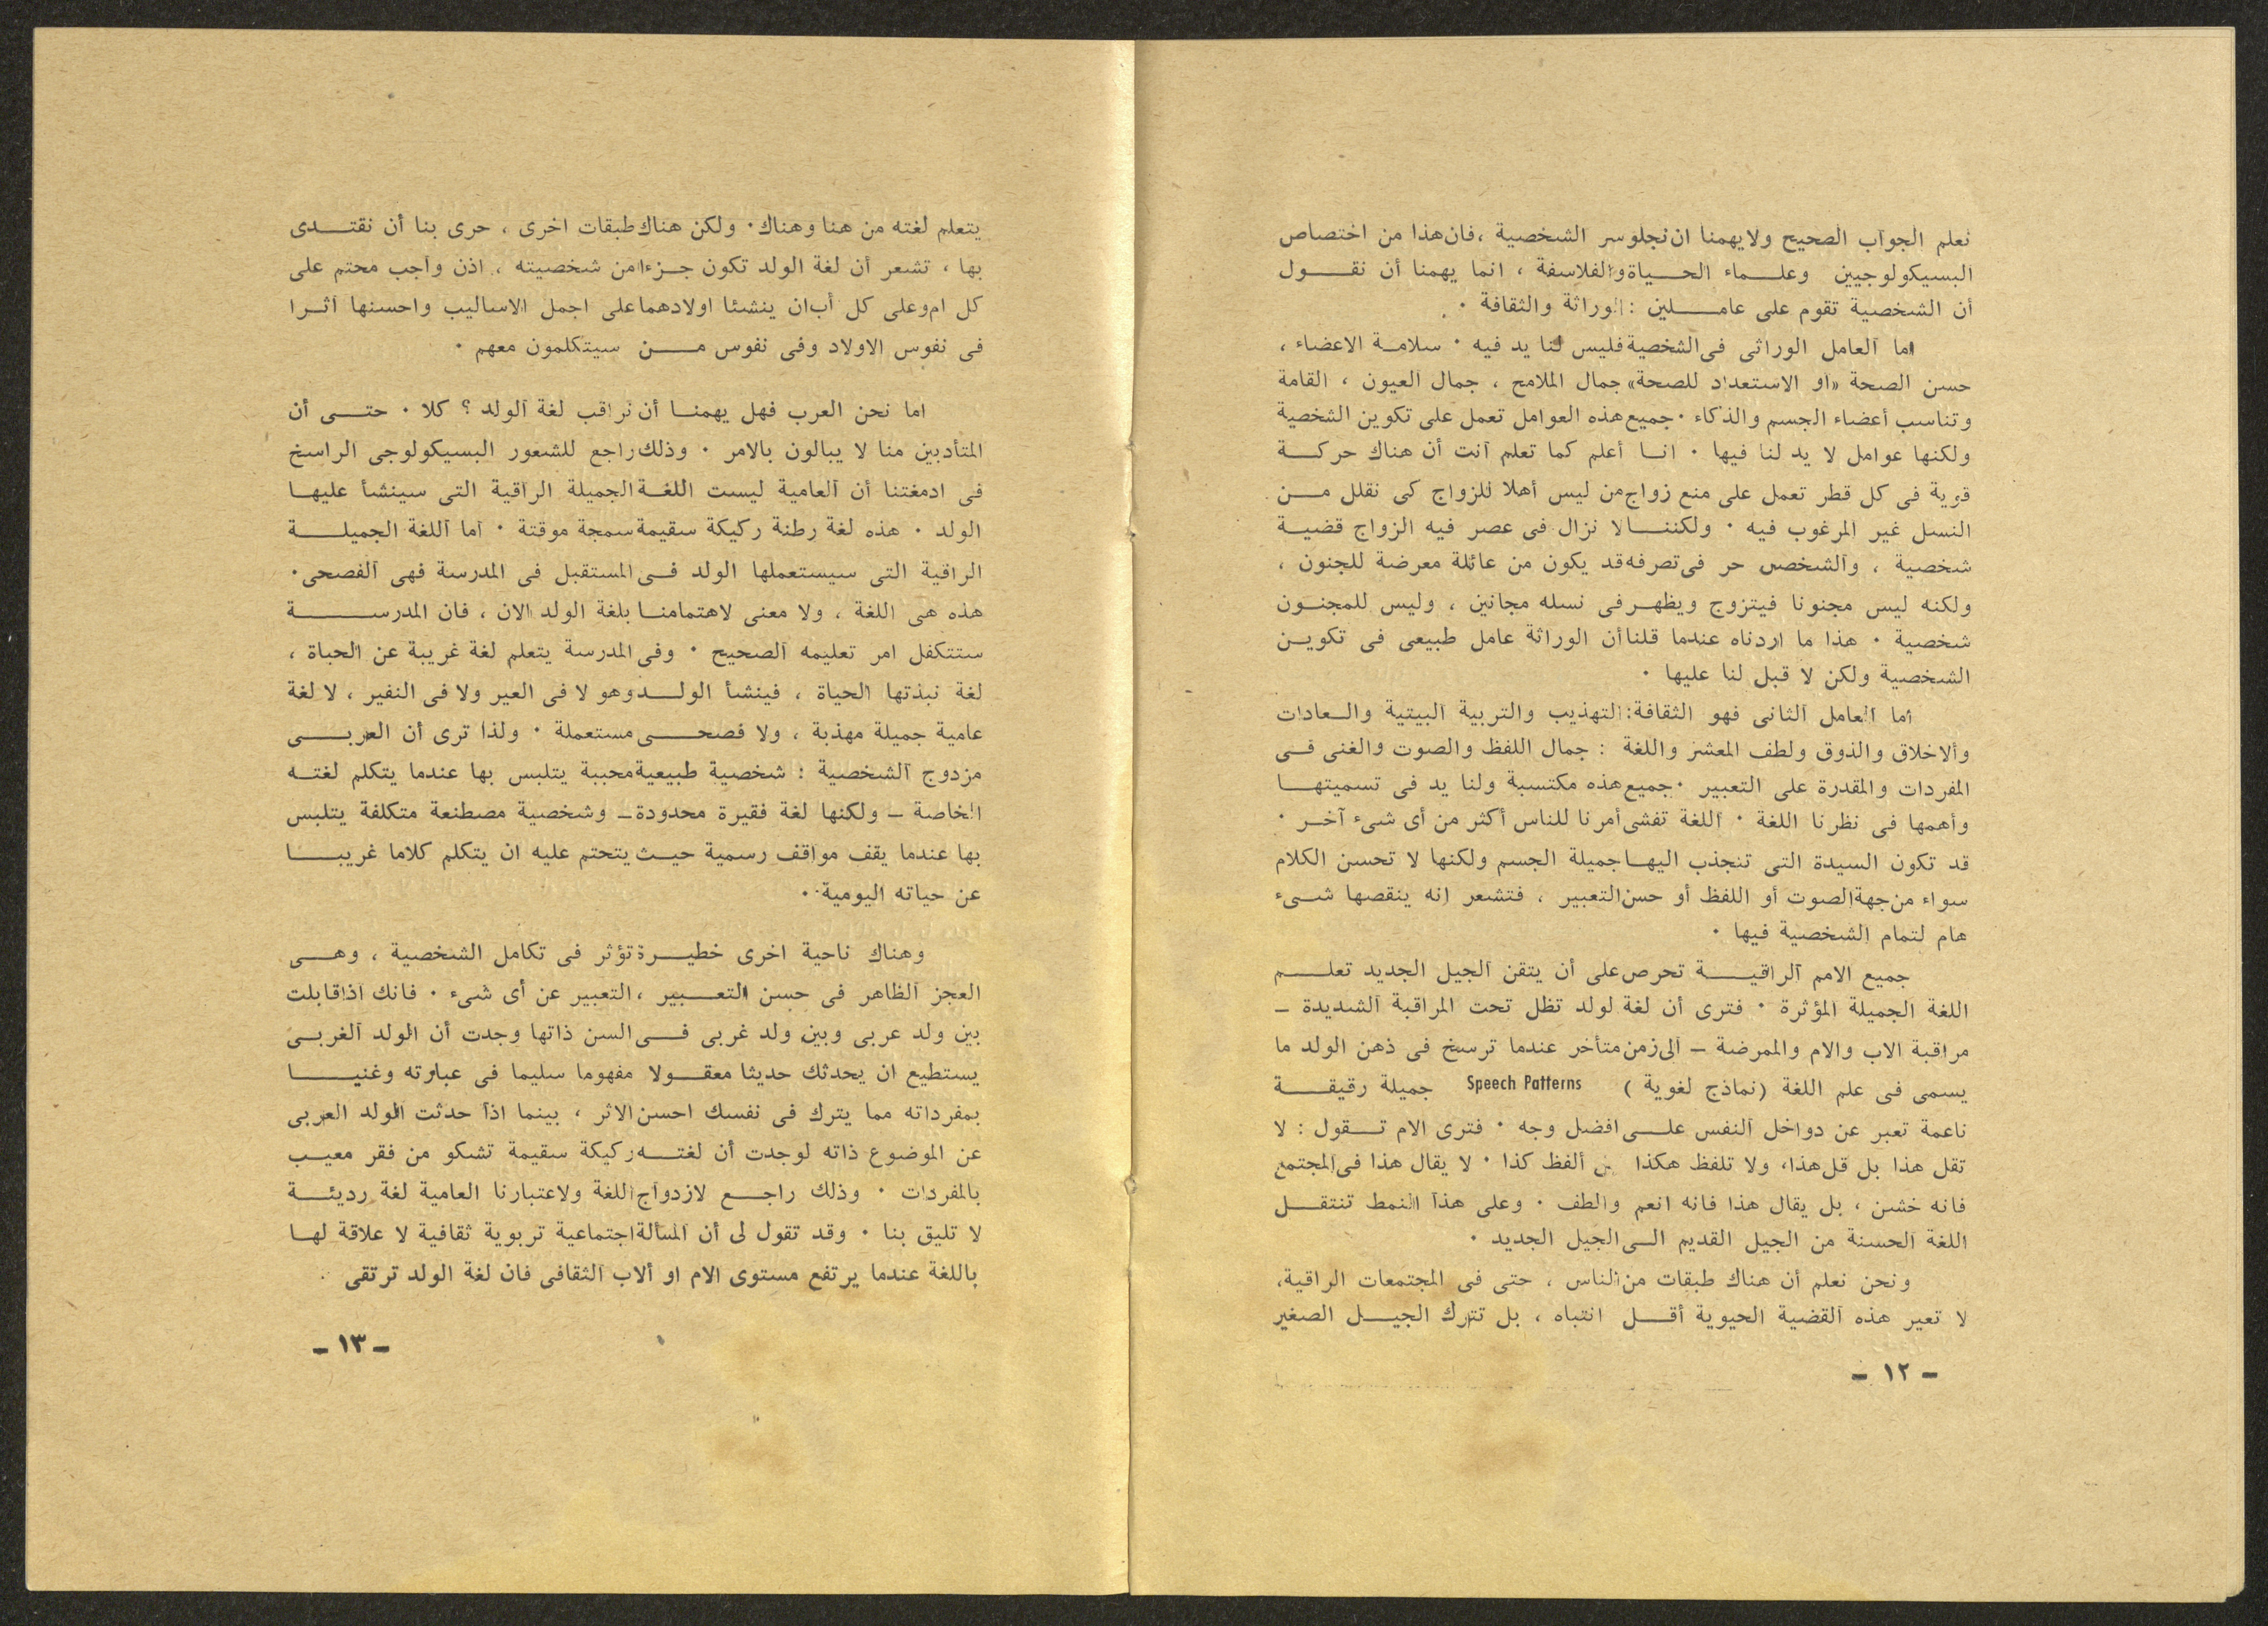 نعلم الجواب الصحيح ولا يهمنا ان نجلو سر الشخصية ، فان هذا من اختصاص
البسيكولوجيين وعلماء الحياة والفلاسفة ، انما يهمنا أن نقول
أن الشخصية تقوم على عاملين : الوراثة والثقافة .
اما العامل الوراثى فى الشخصية فليس لنا يد فيه . سلامة الاعضاء ،
حسن الصحة «او الاستعداد للصحة» جمال الملامح ، جمال العيون ، القامة
وتناسب أعضاء الجسم والذكاء . جميع هذه العوامل تعمل على تكوين الشخصية
ولكنها عوامل لا يد لنا فيها . انا أعلم كما تعلم انت أن هناك حركة
قوية فى كل قطر تعمل على منع زواج من ليس أهلا للزواج كى نقلل من
النسل غير المرغوب فيه . ولكننا لا نزال فى عصر فيه الزواج قضية
شخصية ، والشخص حر فى تصرفه قد يكون من عائلة معرضة للجنون ،
ولكنه ليس مجنونا فيتزوج ويظهر فى نسله مجانين ، وليس للمجنون
شخصية . هذا ما اردناه عندما قلنا أن الوراثة عامل طبيعى فى تكوين
الشخصية ولكن لا قبل لنا عليها .
أما العامل الثانى فهو الثقافة : التهذيب والتربية البيتية والعادات
والاخلاق والذوق ولطف المعشر واللغة : جمال اللفظ والصوت والغنى فى
المفردات والمقدرة على التعبير . جميع هذه مكتسبة ولنا يد فى تسميتها
وأهمها فى نظرنا اللغة . اللغة تفشى أمرنا للناس أكثر من أى شىء آخر .
قد تكون السيدة التى تنجذب اليها جميلة الجسم ولكنها لا تحسن الكلام
سواء من جهة الصوت أو اللفظ أو حسن التعبير ، فتشعر انه ينقصها شىء
هام لتمام الشخصية فيها .
جميع الامم الراقية تحرص على أن يتقن الجيل الجديد تعلم
اللغة الجميلة المؤثرة . فترى أن لغة لولد تظل تحت المراقبة الشديدة –
مراقبة الاب والام والممرضة – الى زمن متأخر عندما ترسخ فى ذهن الولد ما
يسمى فى علم اللغة (نماذج لغوية ) Speech Patterns جميلة رقيقة
ناعمة تعبر عن دواخل النفس على افضل وجه . فترى الام تقول : لا
تقل هذا بل قل هذا، ولا تلفظ هكذا ألفظ كذا . لا يقال هذا فى المجتمع
فانه خشن ، بل يقال هذا فانه انعم والطف . وعلى هذا النمط تنتقل
اللغة الحسنة من الجيل القديم الى الجيل الجديد .
ونحن نعلم أن هناك طبقات من الناس ، حتى فى المجتمعات الراقية،
لا تعير هذه القضية الحيوية أقل انتباه ، بل تترك الجيل الصغير
– ١٢ –
يتعلم لغته من هنا وهناك . ولكن هناك طبقات اخرى ، حرى بنا أن نقتدى
بها ، تشعر أن لغة الولد تكون جزءا من شخصيته ، اذن واجب محتم على
كل ام وعلى كل أب ان ينشئا اولادهما على اجمل الاساليب واحسنها اثرا
فى نفوس الاولاد وفى نفوس من سيتكلمون معهم .
اما نحن العرب فهل يهمنا أن نراقب لغة الولد ؟ كلا . حتى أن
المتأدبين منا لا يبالون بالامر . وذلك راجع للشعور البسيكولوجى الراسخ
فى ادمغتنا أن العامية ليست اللغة الجميلة الراقية التى سينشأ عليها
الولد . هذه لغة رطنة ركيكة سقيمة سمجة موقتة . اما اللغة الجميلة
الراقية التى سيستعملها الولد فى المستقبل فى المدرسة فهى الفصحى .
هذه هى اللغة ، ولا معنى لاهتمامنا بلغة الولد الان ، فان المدرسة
ستتكفل امر تعليمه الصحيح . وفى المدرسة يتعلم لغة غريبة عن الحياة ،
لغة نبذتها الحياة ، فينشأ الولد وهو لا فى العير ولا فى النفير ، لا لغة
عامية جميلة مهذبة ، ولا فصحى مستعملة . ولذا ترى أن العربى
مزدوج الشخصية : شخصية طبيعية محببة يتلبس بها عندما يتكلم لغته
الخاصة – ولكنها لغة فقيرة محدودة – وشخصية مصطنعة متكلفة يتلبس
بها عندما يقف مواقف رسمية حيث يتحتم عليه ان يتكلم كلاما غريبا
عن حياته اليومية .
وهناك ناحية اخرى خطيرة تؤثر فى تكامل الشخصية ، وهى
العجز الظاهر فى حسن التعبير ، التعبير عن أى شىء . فانك اذا قابلت
بين ولد عربى وبين ولد غربى فى السن ذاتها وجدت أن الولد الغربى
يستطيع ان يحدثك حديثا معقولا مفهوما سليما فى عبارته وغنيا
بمفرداته مما يترك فى نفسك احسن الاثر ، بينما اذا حدثت الولد العربى
عن الموضوع ذاته لوجدت أن لغته ركيكة سقيمة تشكو من فقر معيب
بالمفردات . وذلك راجع لازدواج اللغة ولاعتبارنا العامية لغة رديئة
لا تليق بنا . وقد تقول لى أن المسألة اجتماعية تربوية ثقافية لا علاقة لها
باللغة عندما يرتفع مستوى الام او ألاب الثقافى فان لغة الولد ترتقى .
– ١٣ –